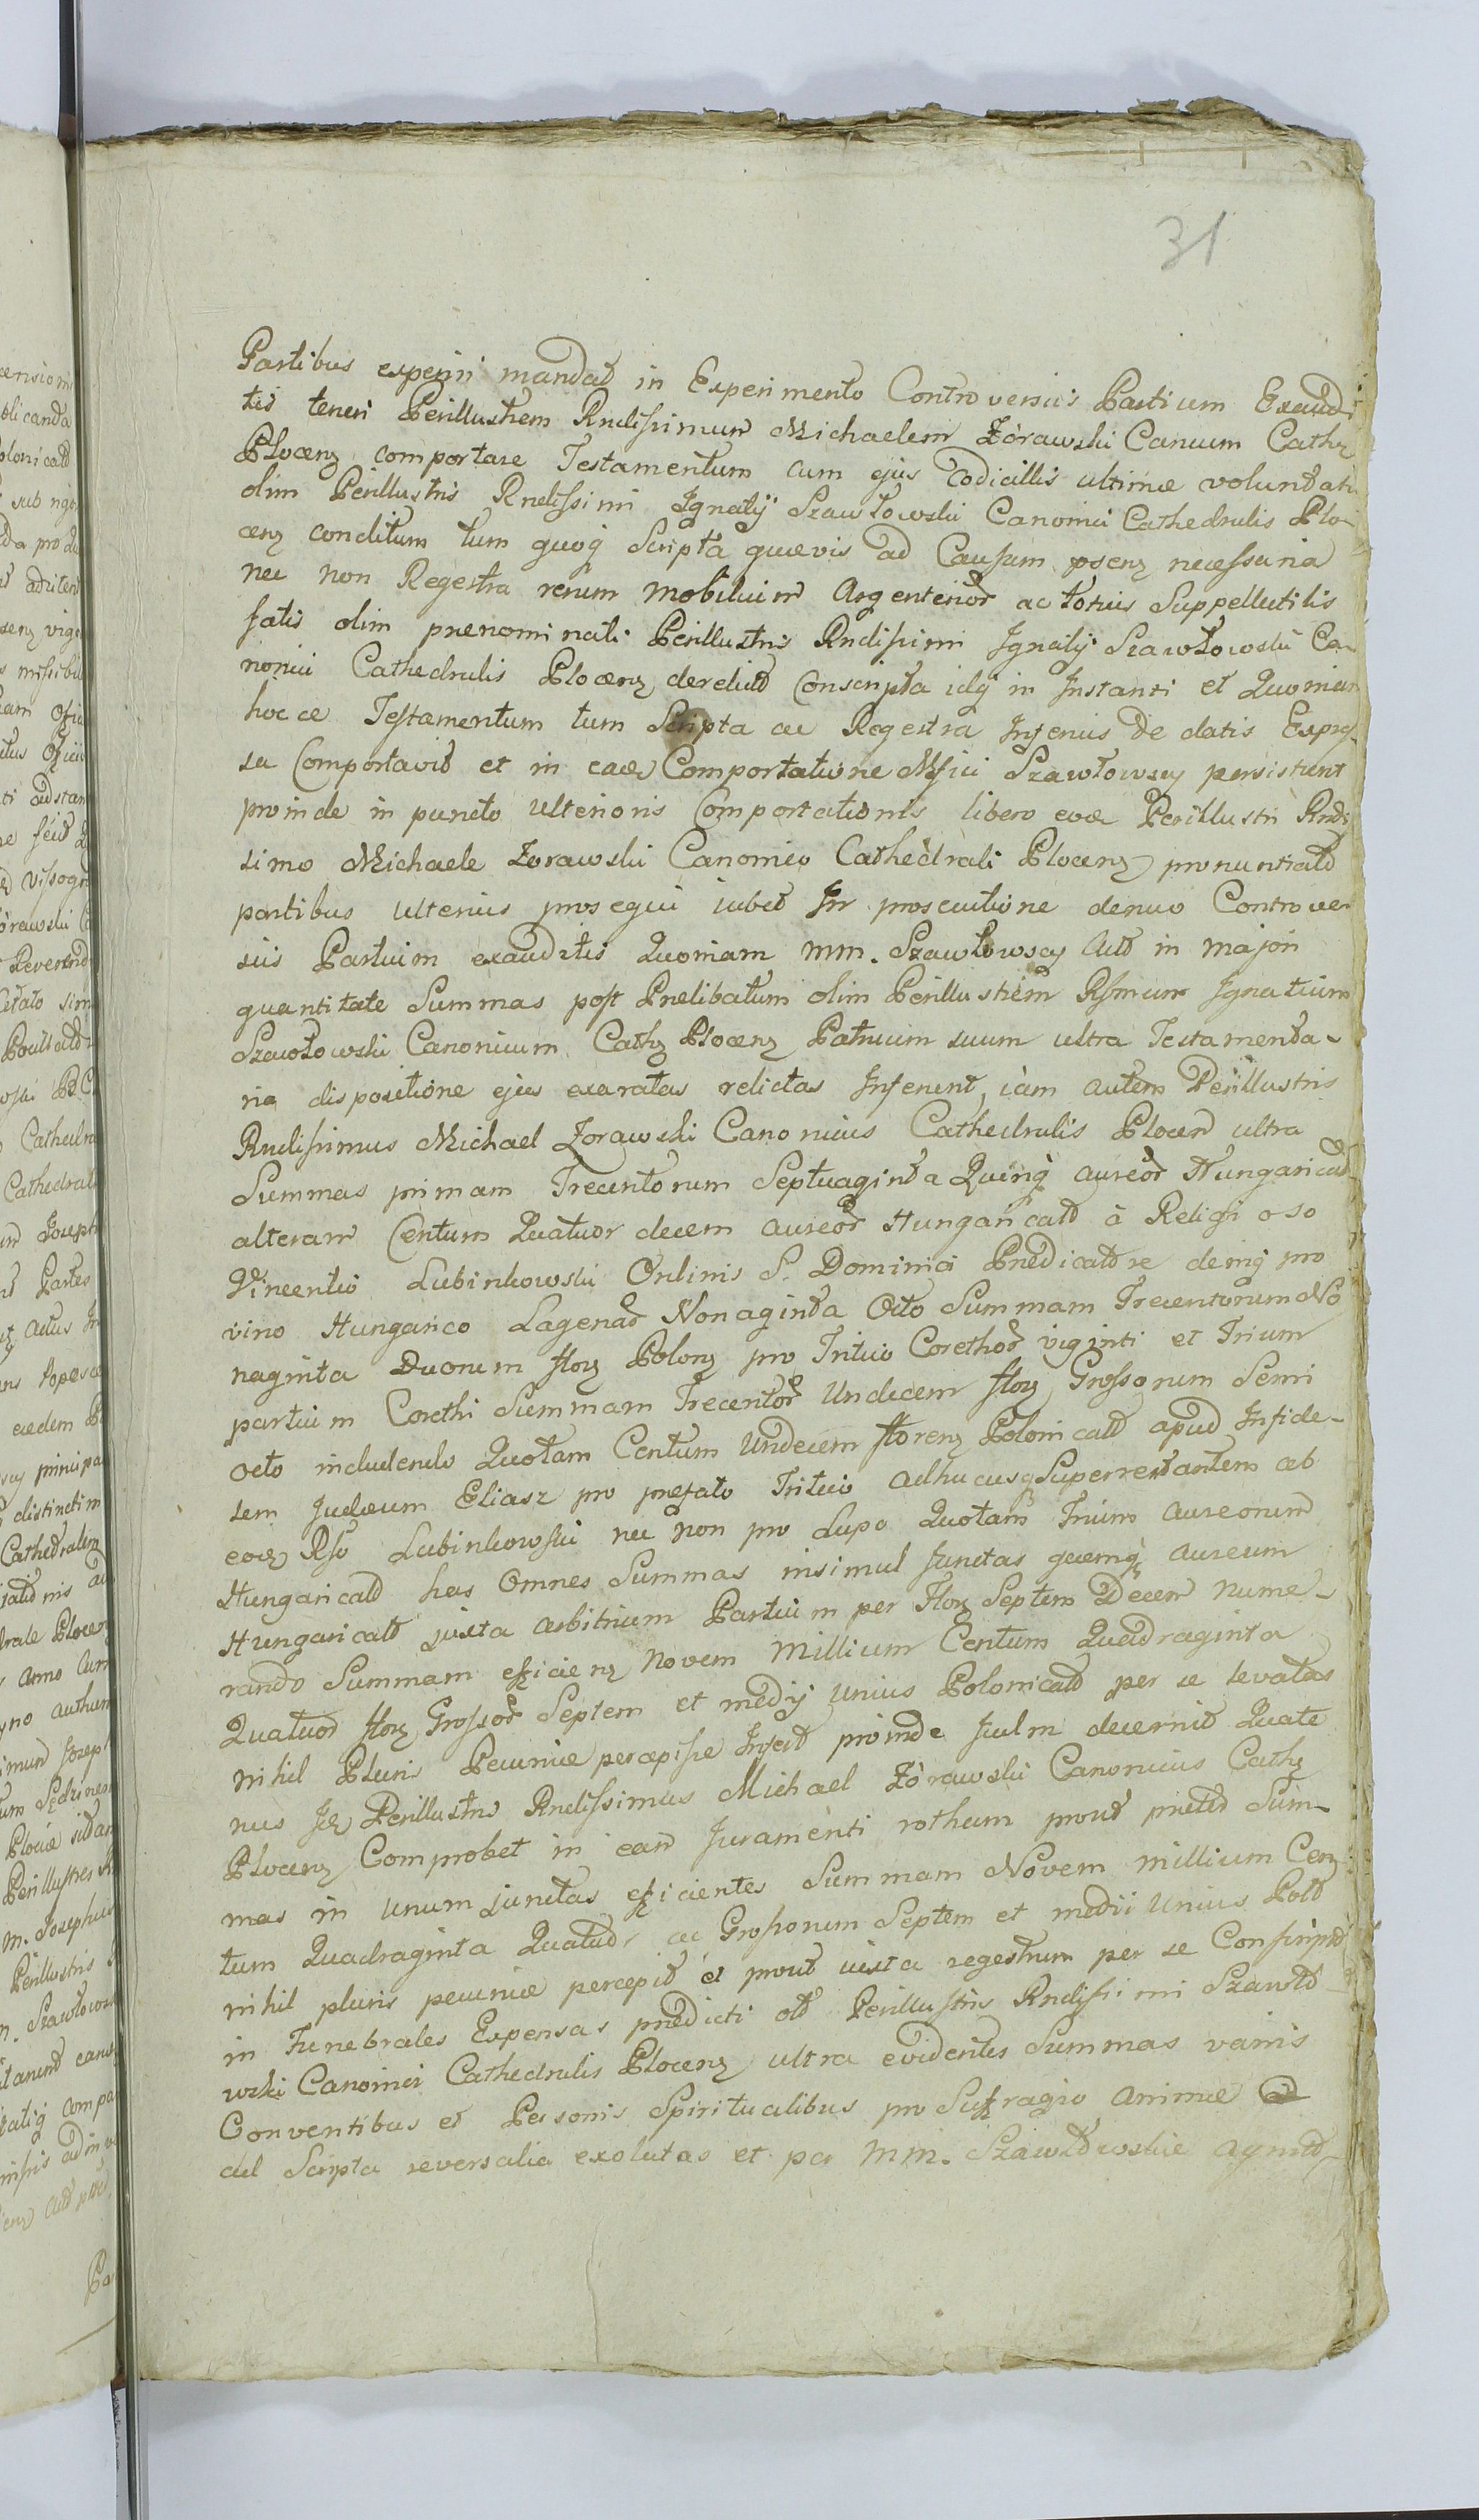 31
Partibus experiri mandat in Experimento Controversiis Partium Exaudi
tis teneri Perillustrem Rndissimum Michaelem Zórawski Canum Cathz
Plocenz comportare Testamentum cum ejus Codicillis ultimæ voluntatis
olim Perillustris Rndissimi Ignatij Szawłowski Canonici Cathedralis Plo-
cenz conditum tum quoq Scripta quævis ad Causam psenz necessaria
nec non Regestra rerum mobilium Argenterior ac totius Suppellectilis
fatis olim prænominati Perillustris Rndissimi Ignatij Szawłowski Ca-
nonici Cathedralis Plocenz derelict Conscripta idq in Instanti et Quoniam
hocce Testamentum tum Scripta ac Regestra Inferius de datis Expres-
sa Comportavit et in eade Comportatione Msici Szawłowscy persistunt
proinde in puncto ulterioris Comportationis libero eode Perillustri Rndis
simo Michaele Zorawski Canonico Cathedrali Plocenz pronuntiato
partibus ulterius prosequi iubet In prosecutione denuo Controver
siis Partium exauditis Quoniam MM. Szawłowscy Act in majori
quantitate Summas post Prælibatum olim Perillustrem Rssmum Ignatium
Szawłowski Canonicum Cathz Plocenz Patruum suum ultra Testamenta-
ria dispositione ejus exaratas relictas Inferunt, iam autem Perillustris
Rndissimus Michael Zorawski Canonicus Cathedralis Plocen ultra
Summas primam Trecentorum Septuaginta Quinq aureor Hungaricat
alteram Centum Quatuor decem aureor Hungaricat à Religioso
Vincentio Lubinkowski Ordinis S. Dominici Prædicatore deinq pro
vino Hungarico Lagenar Nonaginta Octo Summam Trecentorum No
naginta Duorum florz Polonz pro Tritico Corethor viginti et Trium
partium Corethi Summam Trecentor Undecem florz Grossorum Semi
octo includendo Quotam Centum Undecem florenz Polonicalt apud Infide-
lem Judæum Eliasz pro præfato Tritico adhucusq Superrestantem ab
eode Rso Lubinkowski nec non pro Lupo Quotam Trium aureorum
Hungaricalt has Omnes Summas insimul Junctas quemq aureum
Hungaricalt juxta arbitrium Partium per florz Septem Decem nume-
rando Summam efficienz Novem Millium Centum Quadraginta
Quatuor florz Grossor Septem et medij unius Polonicalt per se levatas
nihil Pluris Pecuniæ percepisse Infert proinde Judm decernit Quate
nus Jde Perillustris Rndissimus Michael Zórawski Canonicus Cathz
Plocenz Comprobet in eam Juramenti rotham prout præter Sum-
mas in unum junctas efficientes Summam Novem millium Cen
tum Quadraginta Quatuor ac Grossorum Septem et medii Unius Polt
nihil pluris pecuniæ percepit et prout iuxta regestrum per se Conscript
in Funebrales Expensas prædicti olt Perillustris Rndissimi Szawło
wski Canonici Cathedralis Plocenz ultra evidentes Summas variis
Conventibus et Personis Spiritualibus pro Suffragio animæ
ad Scripta reversalia exolutas et per MM. Szawłowskie agnit-